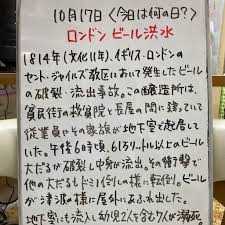 10月17日〈今日は何の日?〉
ロンドン ビール洪水
1814年(文化11年)、イギリス・ロンドンの
セント・ジャイルズ教区において発生したビール
の破裂・流出事故。この醸造所は、
貧民街の救貧院と長屋の間に建っていて
従業員やその家族が地下室で起居して
した。午後6時頃、61万リットル以上のビール
大だるが破裂し中身が流出。その衝撃で
他の大だるもドミノ倒しの様に転倒。ビール
が津波の様に屋外にあふれ出した。
地下室にも流入し幼児2人を含む7人が溺死。